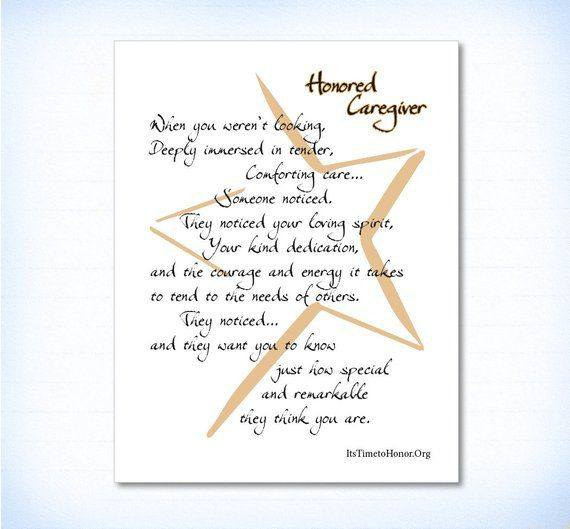 Honored
Caregiver
When you weren't looking,
Deeply immersed in tender,
Comforting care...
Someone noticed.
They noticed your loving spirit,
Your kind dedication,
and the courage and energy it takes
to tend to the needs of others.
They noticed...
and they want you to know
just how special
and remarkable
they think you are.
ItsTimetoHonor.Org